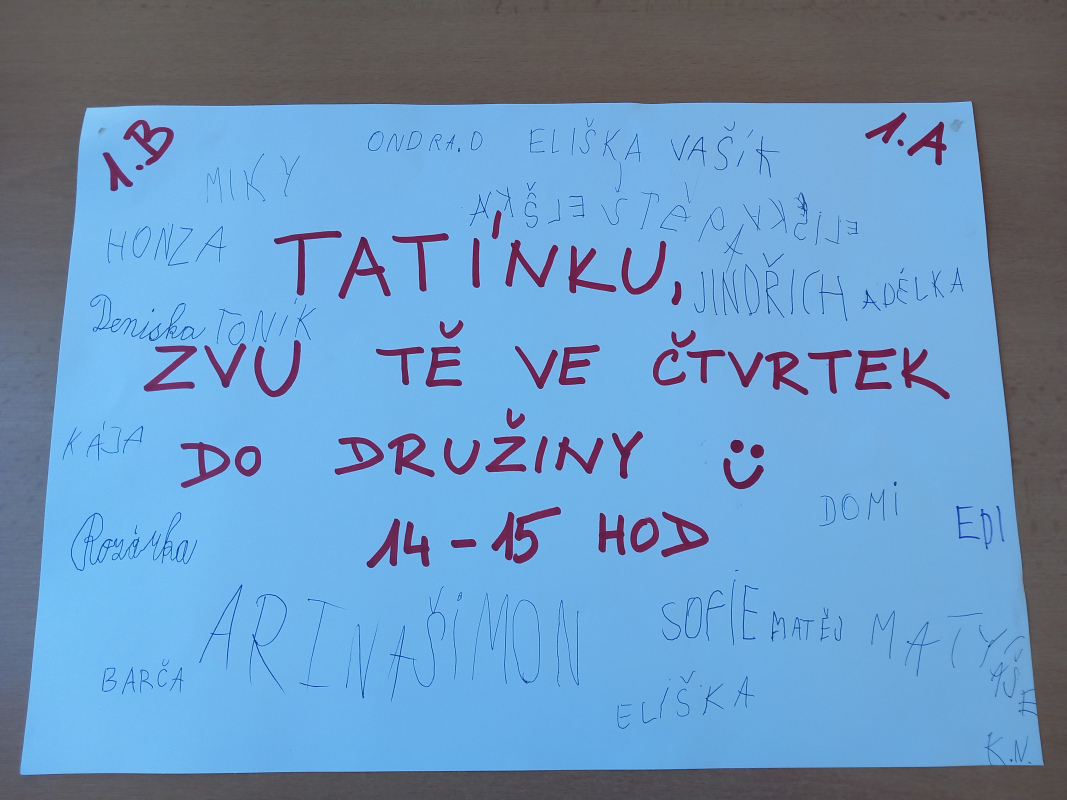 1.B ONDRA.D ELIŠKA VAŠÍK 1.A
MIKY
HONZA
TATÍNKU,
JINDŘICH ADÉLKA
Deniska TONÍK
ZVU TĚ VE ČTVRTEK
KÁJA
DO DRUŽINY
DOMI EDI
Rozárka
14-15 HOD
ARINA ŠIMON
SOFIE MATĚJ
BARČA
ELIŠKA
K.N.